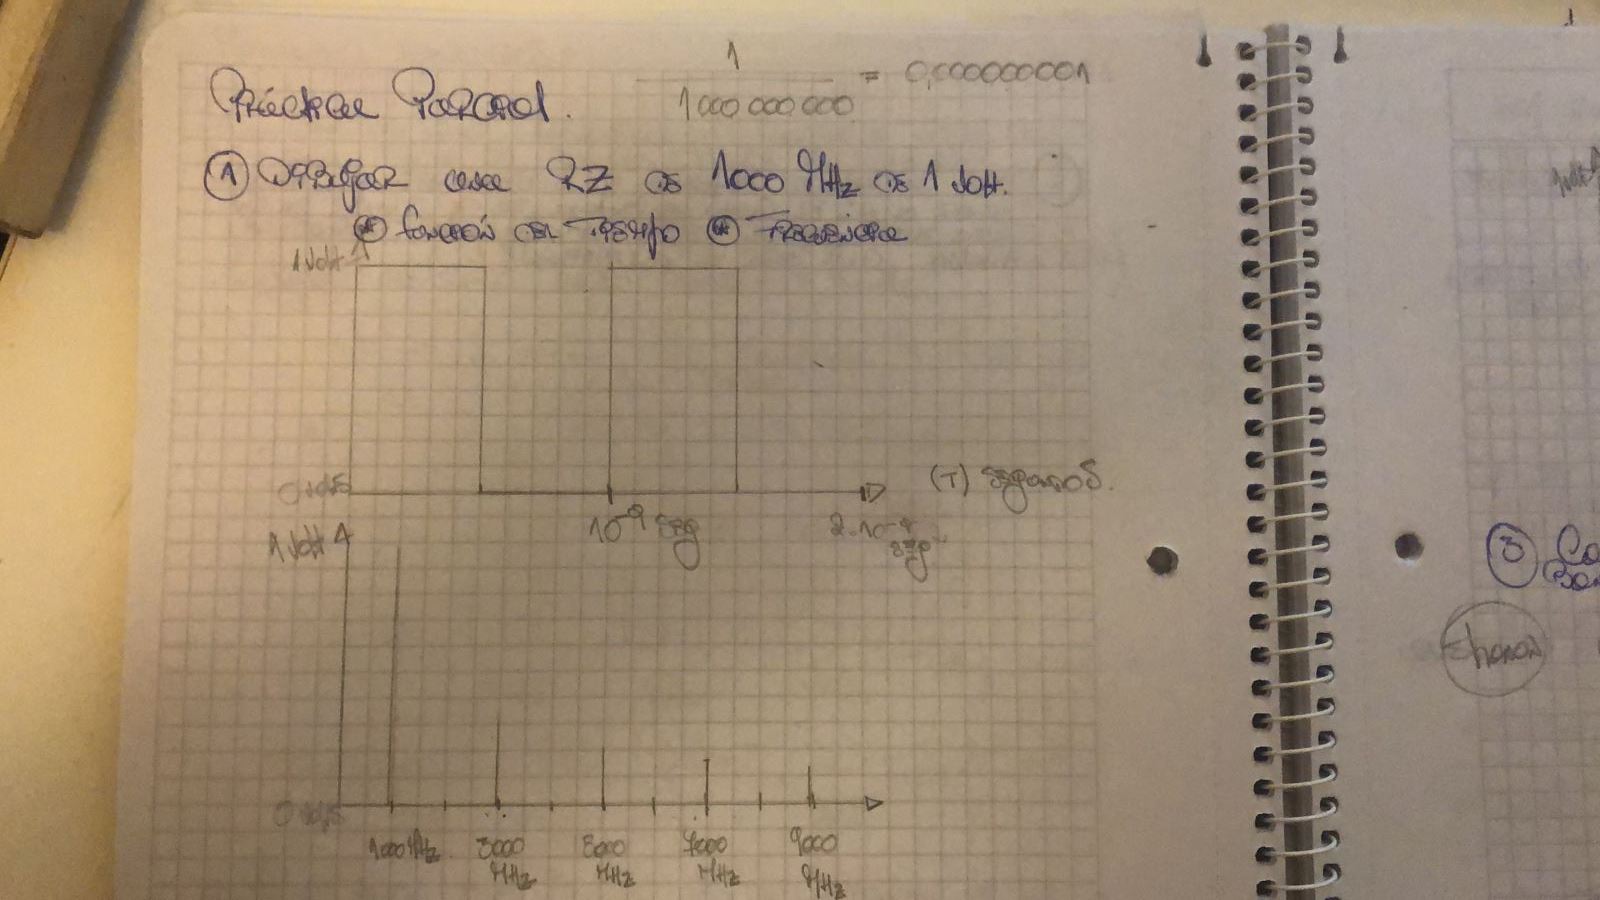 Práctica Parcial.
1 / 1000 000 000 = 0,000000001
① Dibujar onda RZ de 1000 MHz de 1 Volt.
* función del Tiempo * Frecuencia
1 Volt
0 volts
(T) segundos.
10⁻⁹ seg
2.10⁻⁹ seg
1 Volt
0 volts
1000 MHz 3000 MHz 5000 MHz 7000 MHz 9000 MHz
③